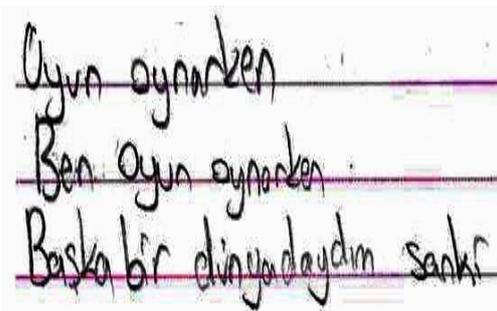 Oyun oynarken
Ben oyun oynarken
Başka bir dünyadaydım sanki